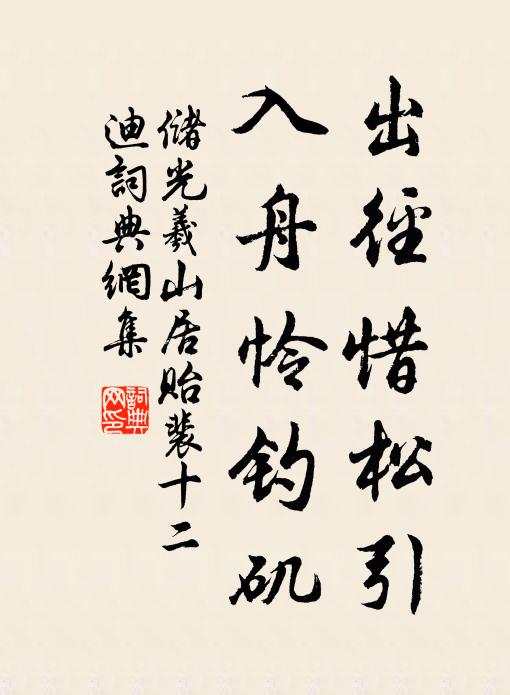 出径惜松引
入舟怜钓矶
儲光羲山居貽裴十二
迪詞典網集
詞典网印